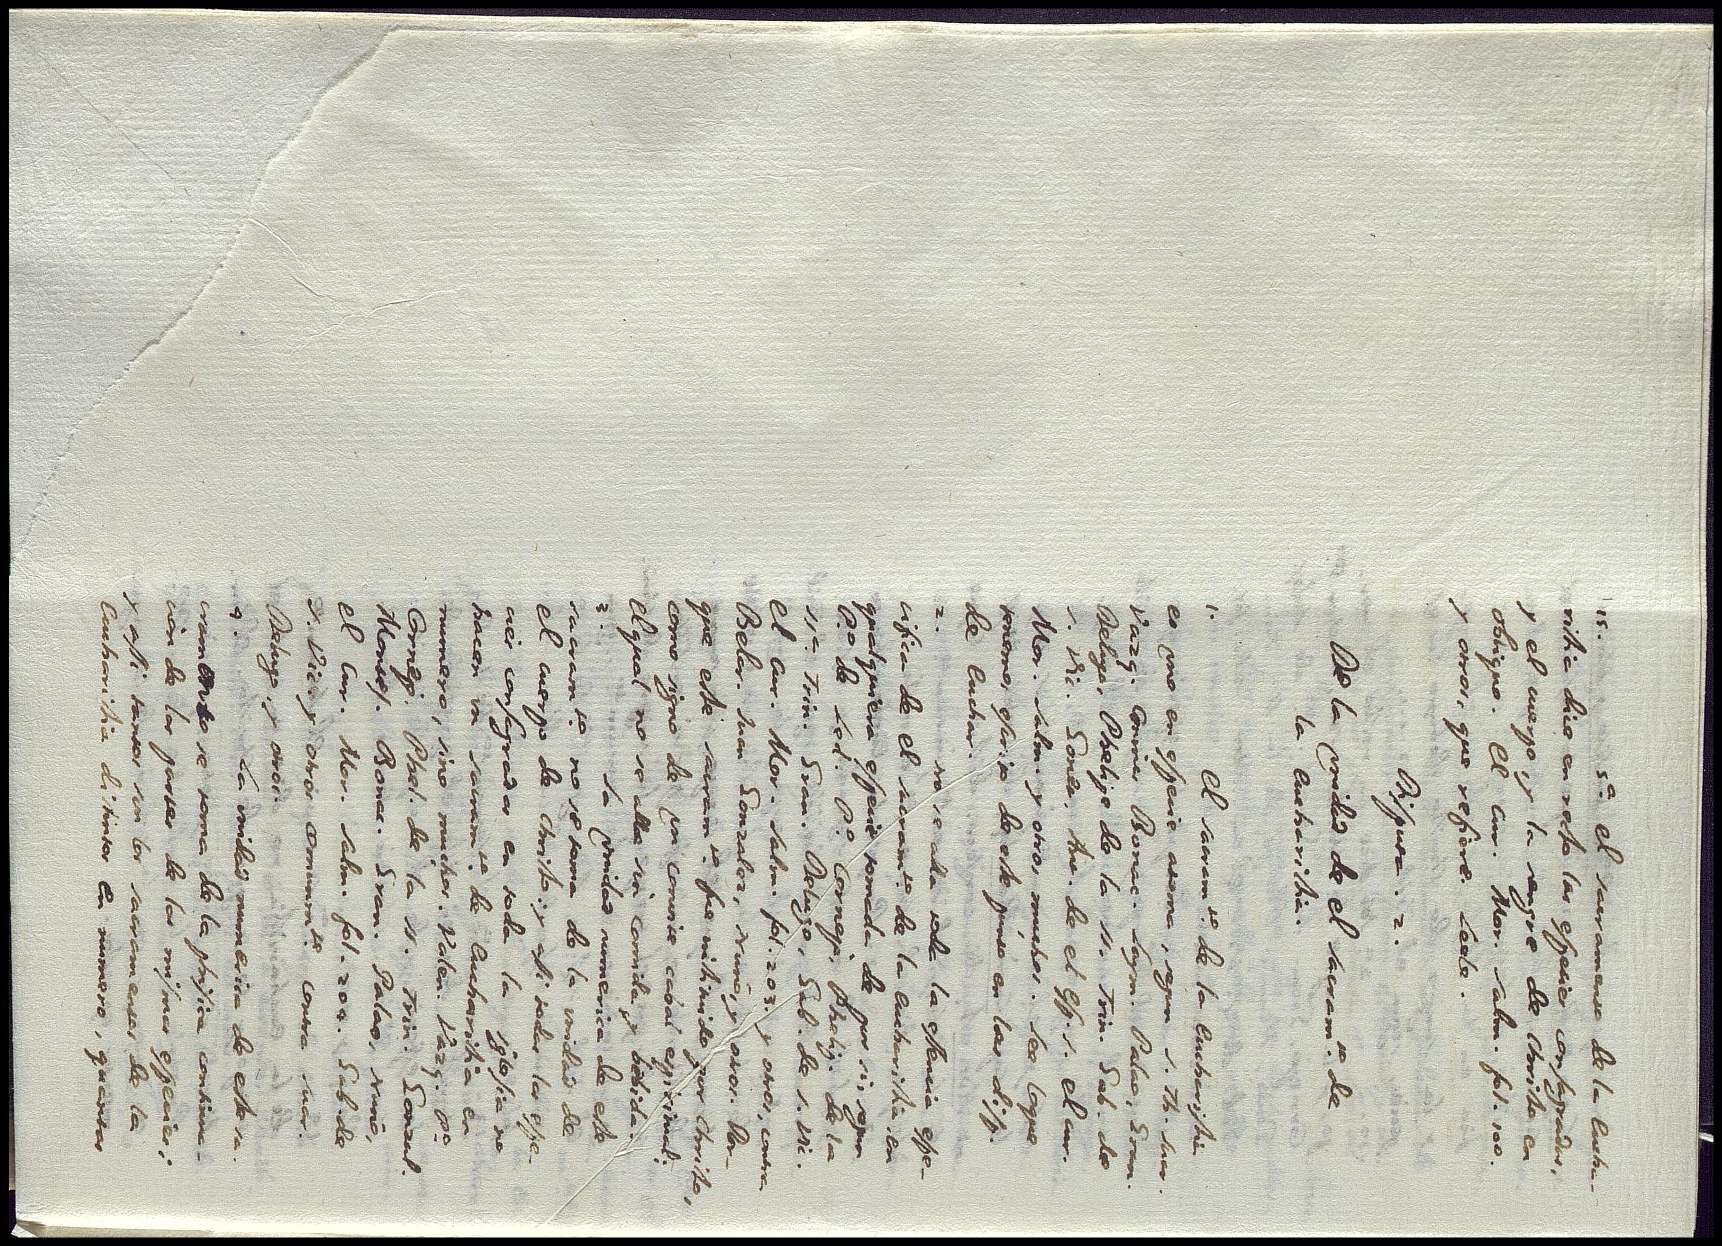 15. 5ª El sacramento de la Eucha-
ristia dice en recto las especies consagradas,
y el cuerpo, y la sangre de Christo en
obliquo. El Cur. Mor. Salm. fol. 100.
y otros, que refiere. Leele.
Disputa. 2.
De la Unidad de el Sacram.to de
la Eucharistia.
1. El Sacram.to de la Eucharistia
es uno en especie atoma, segun S. Th. Suar.
Vazq. Coninc. Bonac. Laym. Palao, Gran.
Delugo, Phelipe de la SS. Trin. Gab. de
S. Vic. Gonet. de el Esp. S. el Cur.
Mor. Salm. y otros muchos. Lea Lope
de este punto en las disp.
de Euchar.
2. No se alla toda la essencia espe-
cifica de el sacram.to de la Eucharistia en
qualquiera especie tomada de por si, segun
P.º de Led. P.º Cornejo, Phelip. de la
SS.ª Trin. Gran. Delugo, Gab. de S. Vi.
El Cur. Mor. Salm. fol. 203. y otros, contra
Belar. Juan Gonzalez, Nuño, y otros. Por-
que este sacram.to fue instituido por Christo,
como signo de un convite cabal espiritual:
el qual no se alla sin comida, y bebida.
3. La Unidad numerica de este
sacram.to no se toma de la unidad de
el cuerpo de Christo: y assi todas las espe-
cies consagradas en toda la Iglesia no
hacen un sacram.to de Eucharistia en
numero, sino muchos. Valen. Vazq. P.º
Cornejo, Phel. de la SS. Trin. Gonzal.
Bonac. Gran. Palao, Nuño,
el Cur. Mor. Salm. fol. 204. Gab. de
S. Vic. y otros comunm.te contra Suar.
Delugo, y otros.
4. La unidad numerica de este sa-
cramento se toma de la phisica continua-
cion de las partes de las mismas especies:
y assi tantos son los sacramentos de la
Eucharistia distintos en numero, quantas